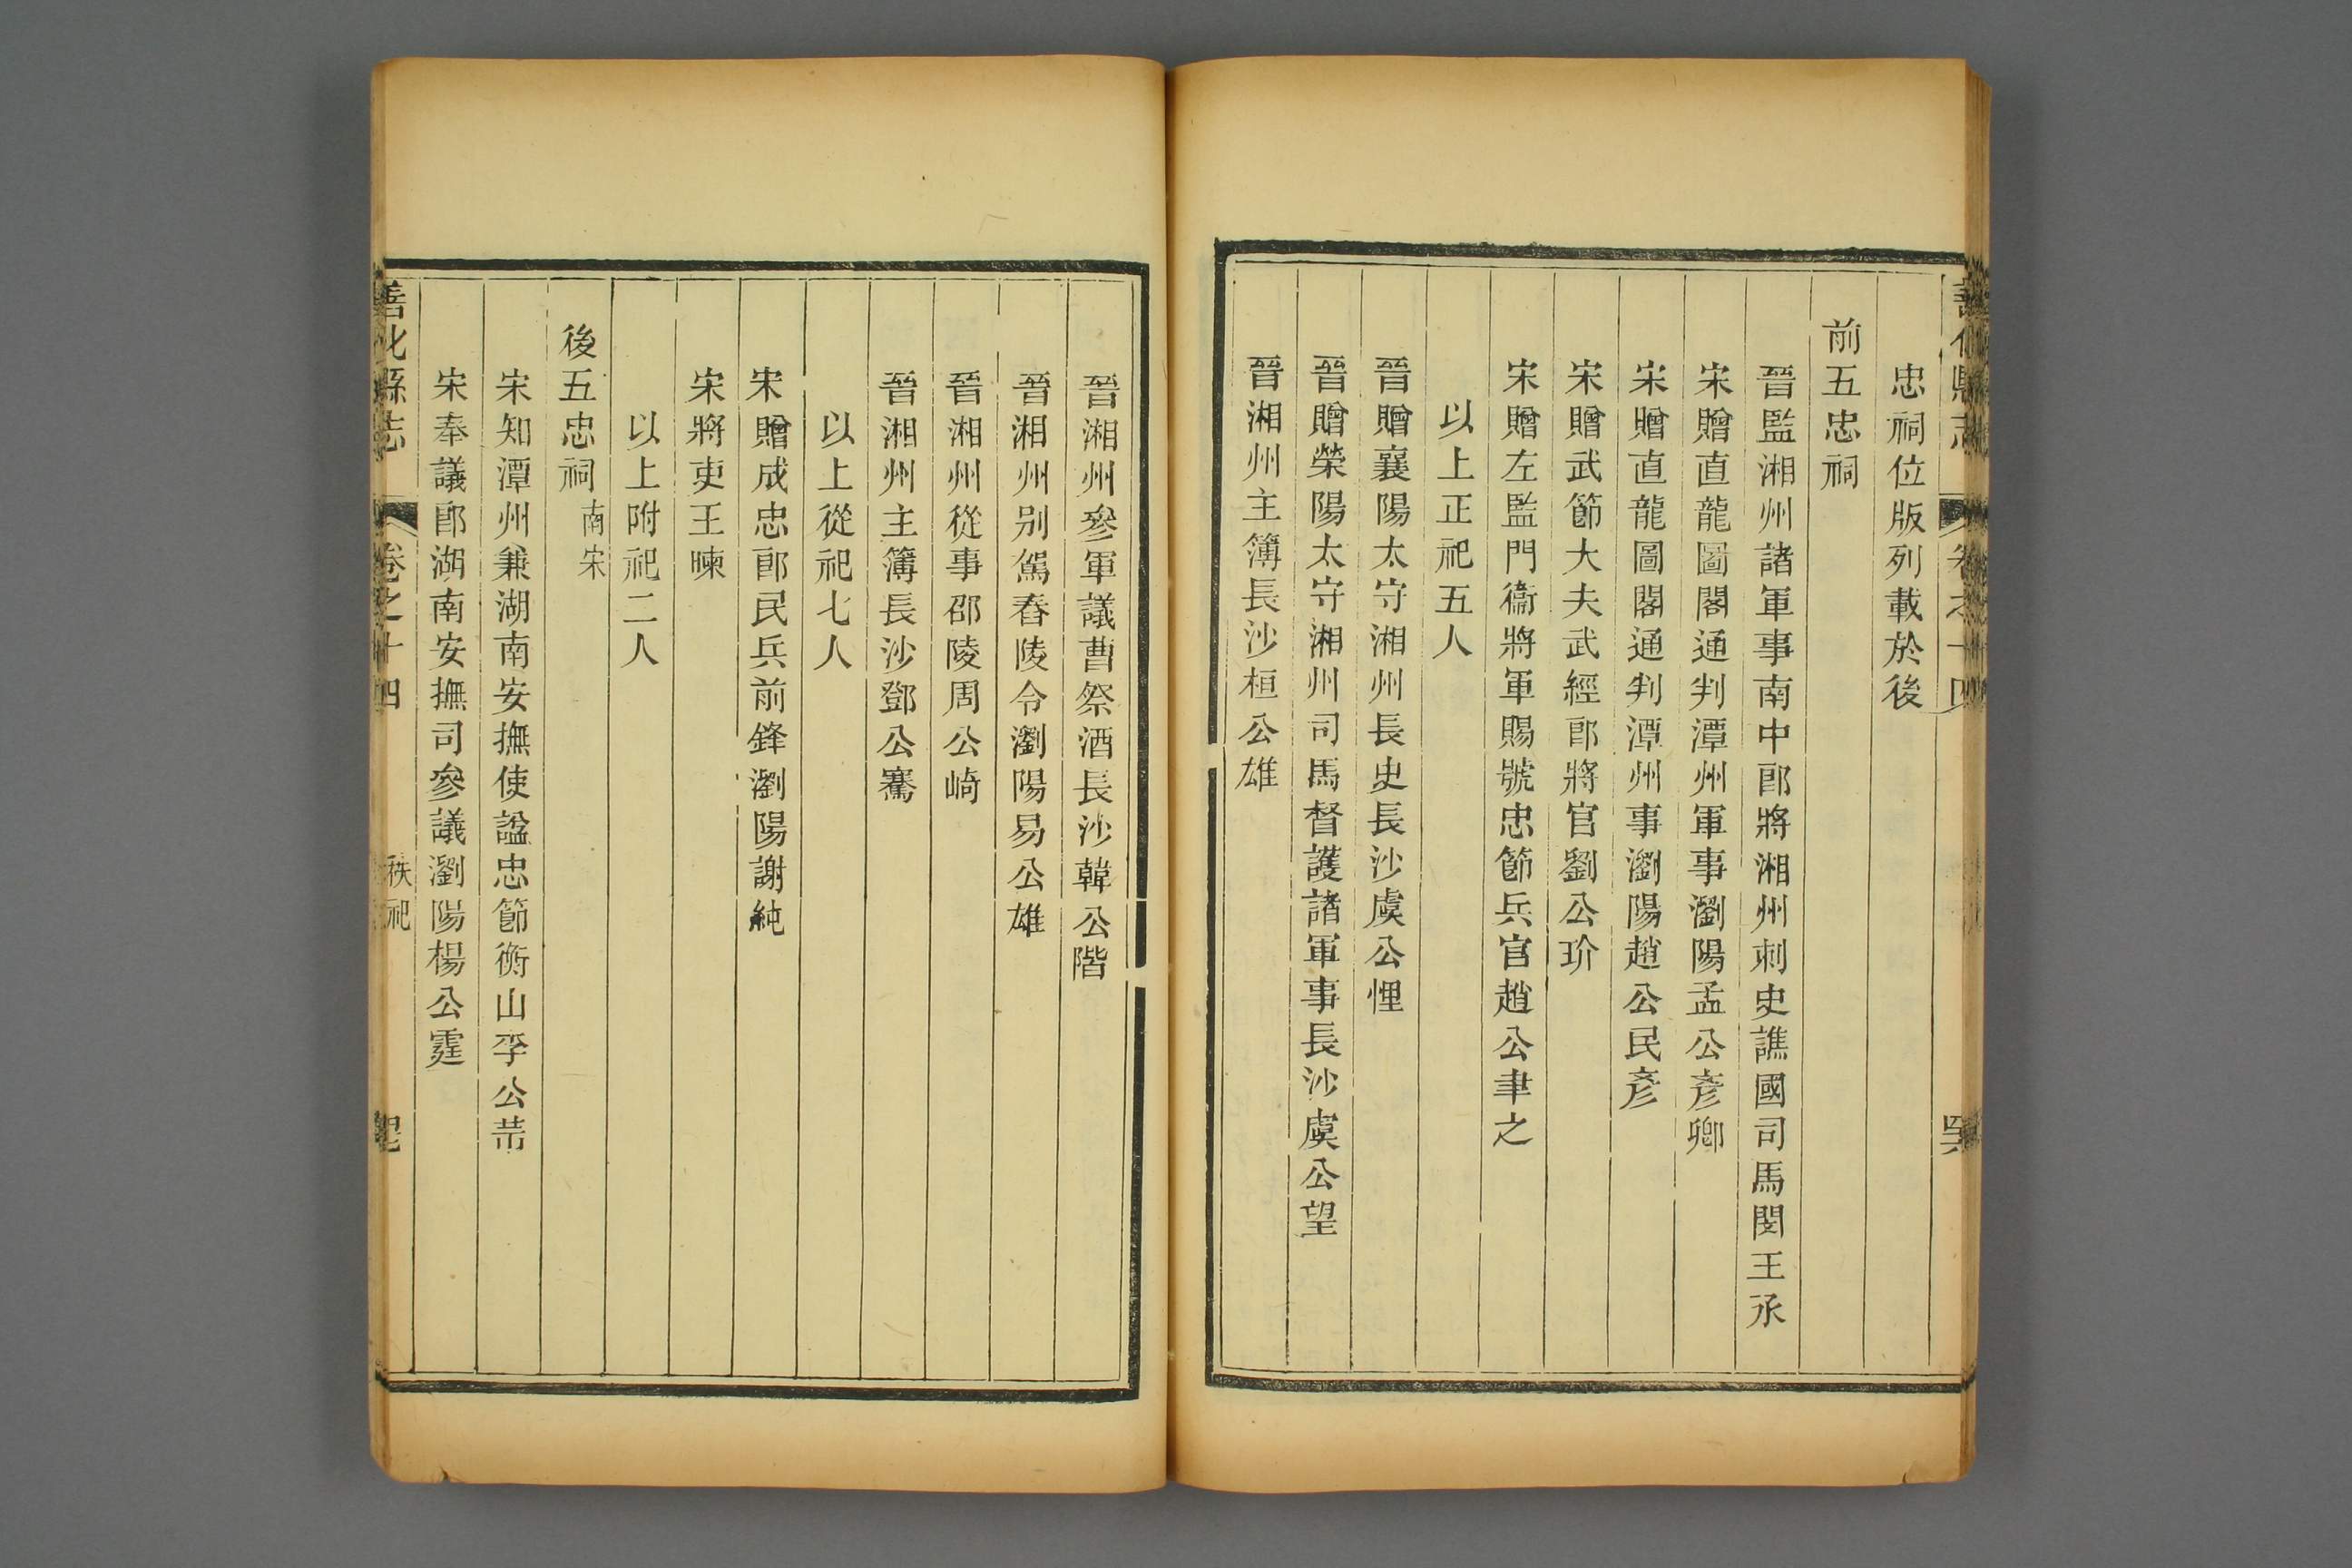 忠祠位版列載於後
前五忠祠
晉監湘州諸軍事南中郎將湘州刺史譙國司馬閔王承
宋贈直龍圖閣通判潭州軍事瀏陽孟公彥卿
宋贈直龍圖閣通判潭州事瀏陽趙公民彥
宋贈武節大夫武經郎將官劉公玠
宋贈左監門衞將軍賜號忠節兵官趙公聿之
以上正祀五人
晉贈襄陽太守湘州長史長沙虞公悝
晉贈榮陽太守湘州司馬督護諸軍事長沙虞公望
晉湘州主簿長沙桓公雄
晉湘州參軍議曹祭酒長沙韓公階
晉湘州別駕舂陵令瀏陽易公雄
晉湘州從事邵陵周公崎
晉湘州主簿長沙鄧公騫
以上從祀七人
宋贈成忠郎民兵前鋒瀏陽謝純
宋將吏王暕
以上附祀二人
後五忠祠南宋
宋知潭州兼湖南安撫使諡忠節衡山李公芾
宋奉議郎湖南安撫司參議瀏陽楊公霆
善化縣志 卷之十四 秩祀